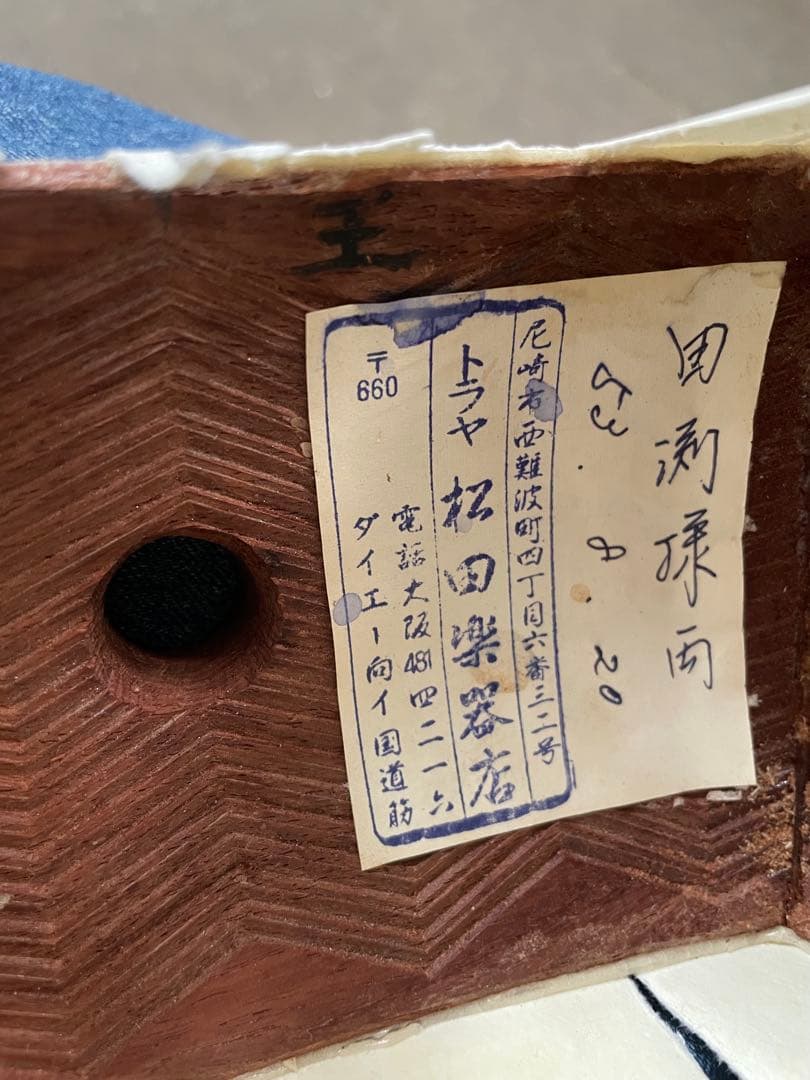 王
田渕様両
53.8.20
尼崎市西難波町四丁目六番三二号
トラヤ 松田楽器店
電話大阪481四二一六
ダイエー向イ国道筋
〒660